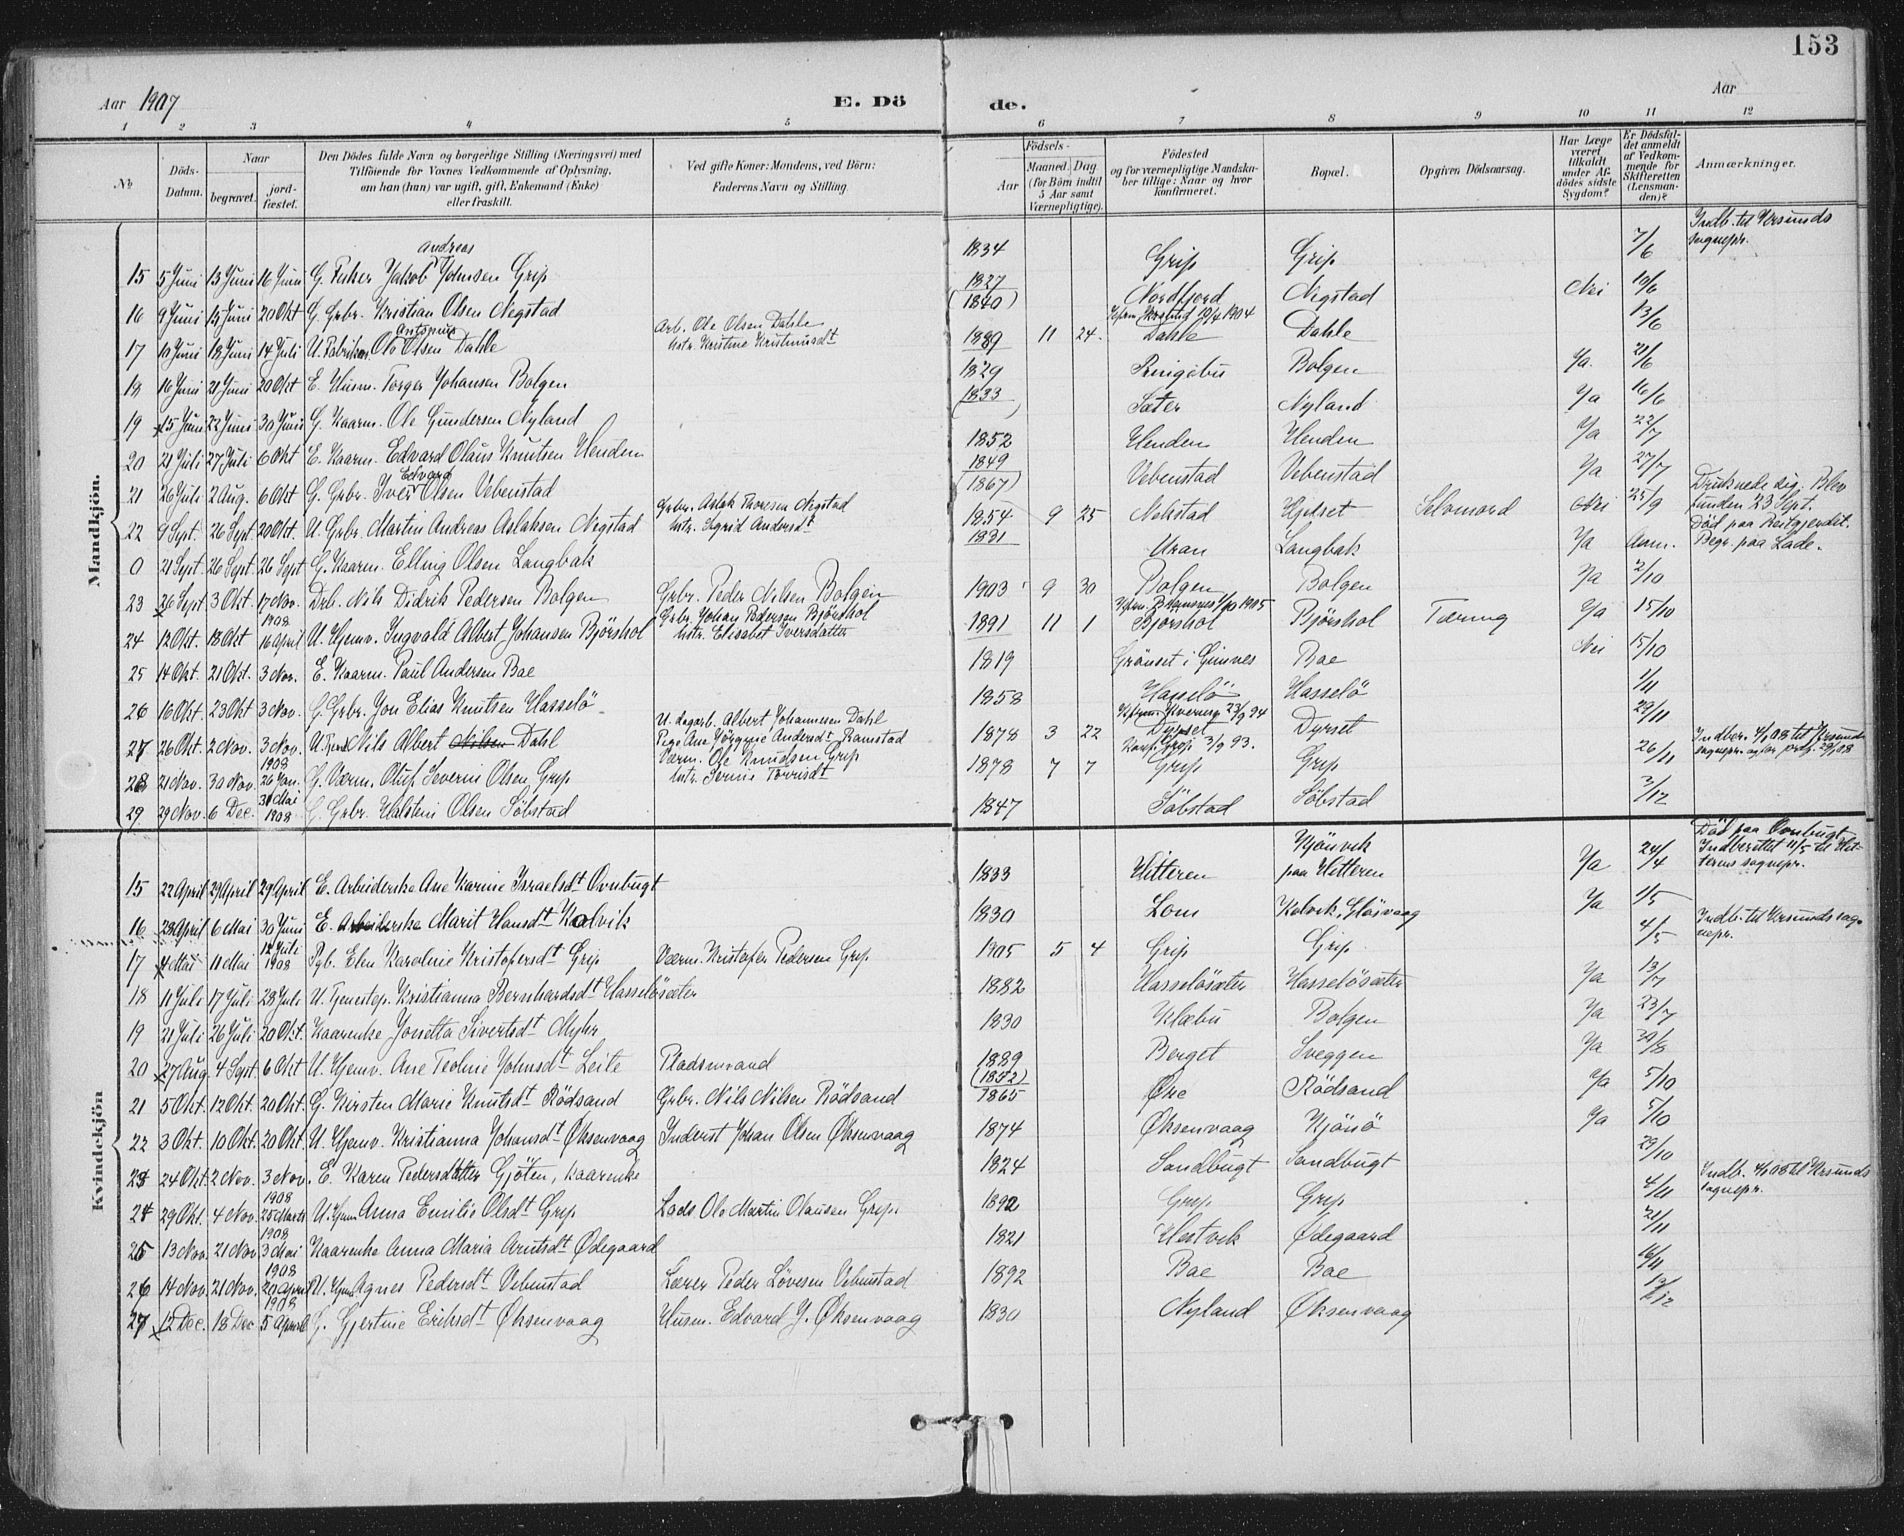 153
Aar 1907 E. Dö de. Aar
1 2 3 4 5 6 7 8 9 10 11 12
No
Döds-Datum.
Naar
begravet.
jordfæstet.
Den Dödes fulde Navn og borgerlige Stilling (Næringsvei) med
Tilföiende for Voxnes Vedkommende af Oplysning,
om han (hun) var ugift, gift, Enkemand (Enke)
eller fraskilt.
Ved gifte Koner: Mandens, ved Börn:
Faderens Navn og Stilling.
Födsels-
Aar
Maaned. Dag
(for Börn indtil
5 Aar samt
Værnepligtige).
Födested
og for værnepligtige Mandska-
ber tillige: Naar og hvor
konfirmeret.
Bopæl.
Opgiven Dödsaarsag.
Har Læge
været
tilkaldt
under Af-
dödes sidste
Sygdom?
Er Dödsfal-
det anmeldt
af Vedkom-
mende for
Skifteretten
(Lensman-
den)?
Anmærkninger.
Mandkjön.
15 5 Juni 13 Juni 16 Juni G. Fisker Jakob Andreas Johnsen Grip 1834 Grip Grip 7/6 Indb. til Krsunds sognepr.
16 9 Juni 15 Juni 20 Okt G. Grbr. Kristian Olsen Negstad 1827 (1840) Nordfjord Negstad Nei 10/6
17 10 Juni 18 Juni 14 Juli U. Fabrikarb. Ole Antonius Olsen Dahle Arb. Ole Olsen Dahle Hstr. Kristine 1889 11 24. Dahle Dahle 13/6
18 16 Juni 21 Juni 20 Okt E. Husm. Torger Johansen Bolgen 1829 Ringebu Bolgen Ya. 21/6
19 15 Juni 22 Juni 30 Juni G. Kaarm. Ole Gundersen Nyland 1833 Sæter Nyland Ya 16/6
20 21 Juli 27 Juli 6 Okt E. Kaarm. Edvard Olaus Knutsen Henden 1852 Henden Henden Ya 22/7
21 26 Juli 2 Aug. 6 Okt G. Grbr. Iver Edvard Olsen Vebenstad 1849 (1867) Vebenstad Vebenstad Ya 27/7
22 9 Sept. 26 Sept. 20 Okt U. Grbr. Martin Andreas Aslaksen Negstad Grbr. Aslak Thoresen Negstad Hstr. Sigrid Andersdt 1854 9 25 Nekstad Hjelset Selvmord Nei 25/9 Druknede sig. Blev funden 23 Sept.
0 21 Sept 26 Sept 26 Sept G. Kaarm. Elling Olsen Langbak 1831 Uran Langbak Ya Aam. Död paa Reitgjerdet. Begr. paa Lade.
23 26 Sept 3 Okt. 17 Nov. Drb. Nils Didrik Pedersen Bolgen Grbr. Peder Nilsen Bolgen 1903 9 30 Bolgen Bolgen Ya 2/10
24 12 Okt. 18 Okt 1908 16 April U. Hjemv. Ingvald Albert Johansen Bjørshol Grbr. Johan Pedersen Bjørshol Hstr. Elisabet Iversdatter 1891 11 1 Bjørshol Bjørshol Tæring Ya 15/10
25 14 Okt. 21 Okt. 3 Nov. E. Kaarm. Paul Andersen Bae 1819 Grönset i Gimnes Bae Nei 15/10
26 16 Okt. 23 Okt 3 Nov. G. Grbr. Jon Elias Knutsen Hasselö 1858 Hasselö Hasselö 1/11
27 26 Okt. 2 Nov. 3 Nov. U. Nils Albert Nilsen Dahl U. dagarb. Albert Johannesen Dahl Pige Ane Jørgine Andersdt Ramstad 1878 3 22 Konf. Kvernes 23/9 94 Dyrset Dyrset 29/11
28 21 Nov. 30 Nov. 1908 26 Jan. G. Værm. Oluf Severin Olsen Grip Værm. Ole Knudsen Grip 1878 7 7 Konf. Grip 3/9 93. Grip Grip 26/11
29 29 Nov. 6 Dec. 31 Mai 1908 G. Grbr. Halstein Olsen Söbstad 1847 Söbstad Söbstad 3/12
Kvindekjön
15 22 April 29 April 29 April E. Arbeiderske Ane Karine Israelsdt Ovnbugt 1833 Hitteren Kjönvik paa Hitteren Ya 24/4 Död paa Ovnbugt Indberettet 11/5 til Hitterens sognepr.
16 28 April 6 Mai 30 Juni E. Arbeiderske Marit Hansdt Kalvik 1830 Lom Kalvik, Glasvaag Ya 1/5
17 4 Mai 11 Mai 12 Juli 1908 Pgb. Elen Karoline Kristofersdt Grip Værm. Kristofer Pedersen Grip 1905 5 4 Grip Grip 4/5 Indb. til Krsunds sognepr.
18 11 Juli 17 Juli 28 Juli U. Tjenestep. Kristianna Bernhardsdt Hasselösæter 1882 Hasselösæter Hasselösæter Ya 13/7
19 21 Juli 26 Juli 20 Okt. Kaarenke Jonetta Sivertsdt Myhr 1830 Klæbu Bolgen Ya 23/7
20 27 Aug. 4 Sept. 6 Okt U. Hjemv. Ane Teoline Johnsdt Leite Pladsmand 1889 Berget Sveggen Ya 30/8
21 5 Okt. 12 Okt. 20 Okt. G. Kirsten Marie Knutsdt Rödsand Grbr. Nils Nilsen Rödsand (1872) 1865 Øre Rödsand Ya 5/10
22 3 Okt. 10 Okt. 20 Okt. U. Hjemv. Kristianna Johansdt Øksenvaag Inderst Johan Olsen Øksenvaag 1874 Øksenvaag Kjönö Ya 5/10
23 24 Okt. 2 Nov. 3 Nov. E. Karen Pedersdatter Gjöten, kaarenke 1824 Sandbugt Sandbugt 29/10
24 29 Okt. 4 Nov. 1908 25 Marts U. Hjem Anna Emilie Olsdt Grip Lods Ole Martin Olausen Grip 1892 Grip Grip 4/11 Indb. til Krsunds sognepr.
25 13 Nov. 21 Nov 1908 3 Mai Kaarenke Anna Maria Arntsdt Ødegaard 1821 Hestvik Ødegaard 21/11
26 14 Nov. 21 Nov. 1908 20 April U. Hjem Agnes Pedersdt Vebenstad Lærer Peder Lövesen Vebenstad 1892 Bae Bae 16/11
27 12 Dec. 18 Dec 1908 5 April G. Gjertine Eriksdt Øksenvaag Husm. Edvard J. Øksenvaag 1830 Nyland Øksenvaag 13/12